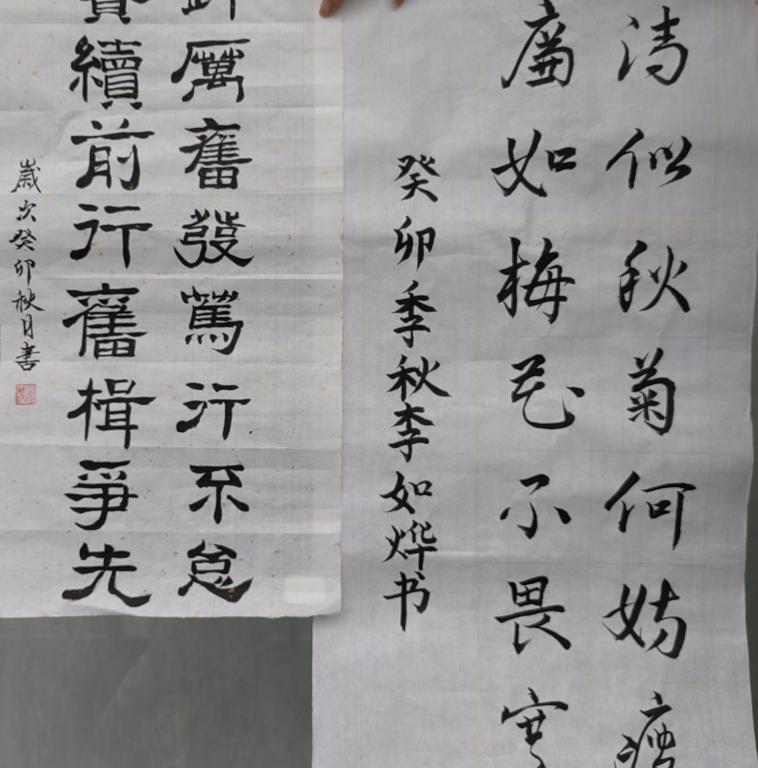 清似秋菊何妨瘦
廉如梅花不畏寒
癸卯季秋李如烨书
厲奮發篤行不怠
續前行奮楫爭先
歲次癸卯秋月書